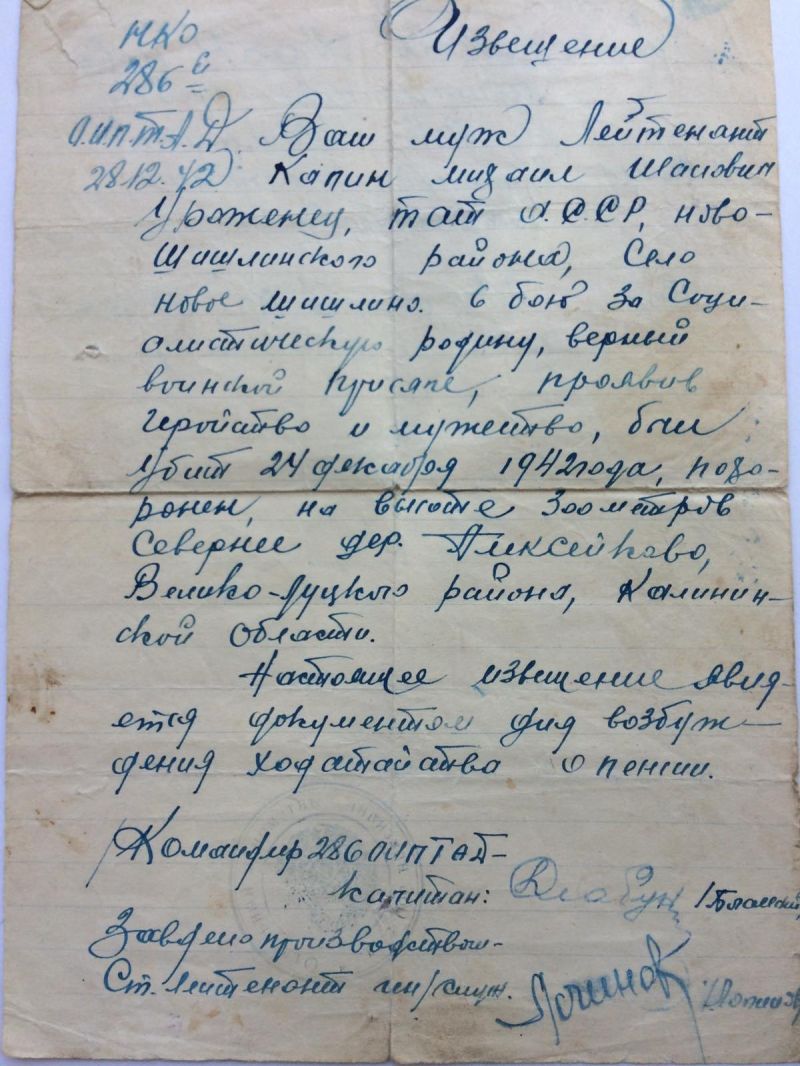 НКО
286й
О.И.П.Т.А.Д.
28.12.42
Извещение
Ваш муж Лейтенант
Капин михаил
Уроженец, тат А.С.СР, ново-
Шишлинского района, Село
новое шишлино. в бою за Соци-
алистическую родину, верный
воинской присяге, проявив
геройство и мужество, был
убит 24 декабря 1942 года, похо-
ронен, на высоте 300 метров
Севернее дер. Алексейково,
Велико-Луцкого района, Калинин-
ской области.
Настоящее извещение явля-
ется документом для возбуж-
дения ходатайства о пенсии.
Командир 286 ОИПТАД-
капитан:
Завделопроизводством-
Ст. лейтенант ин/служ.